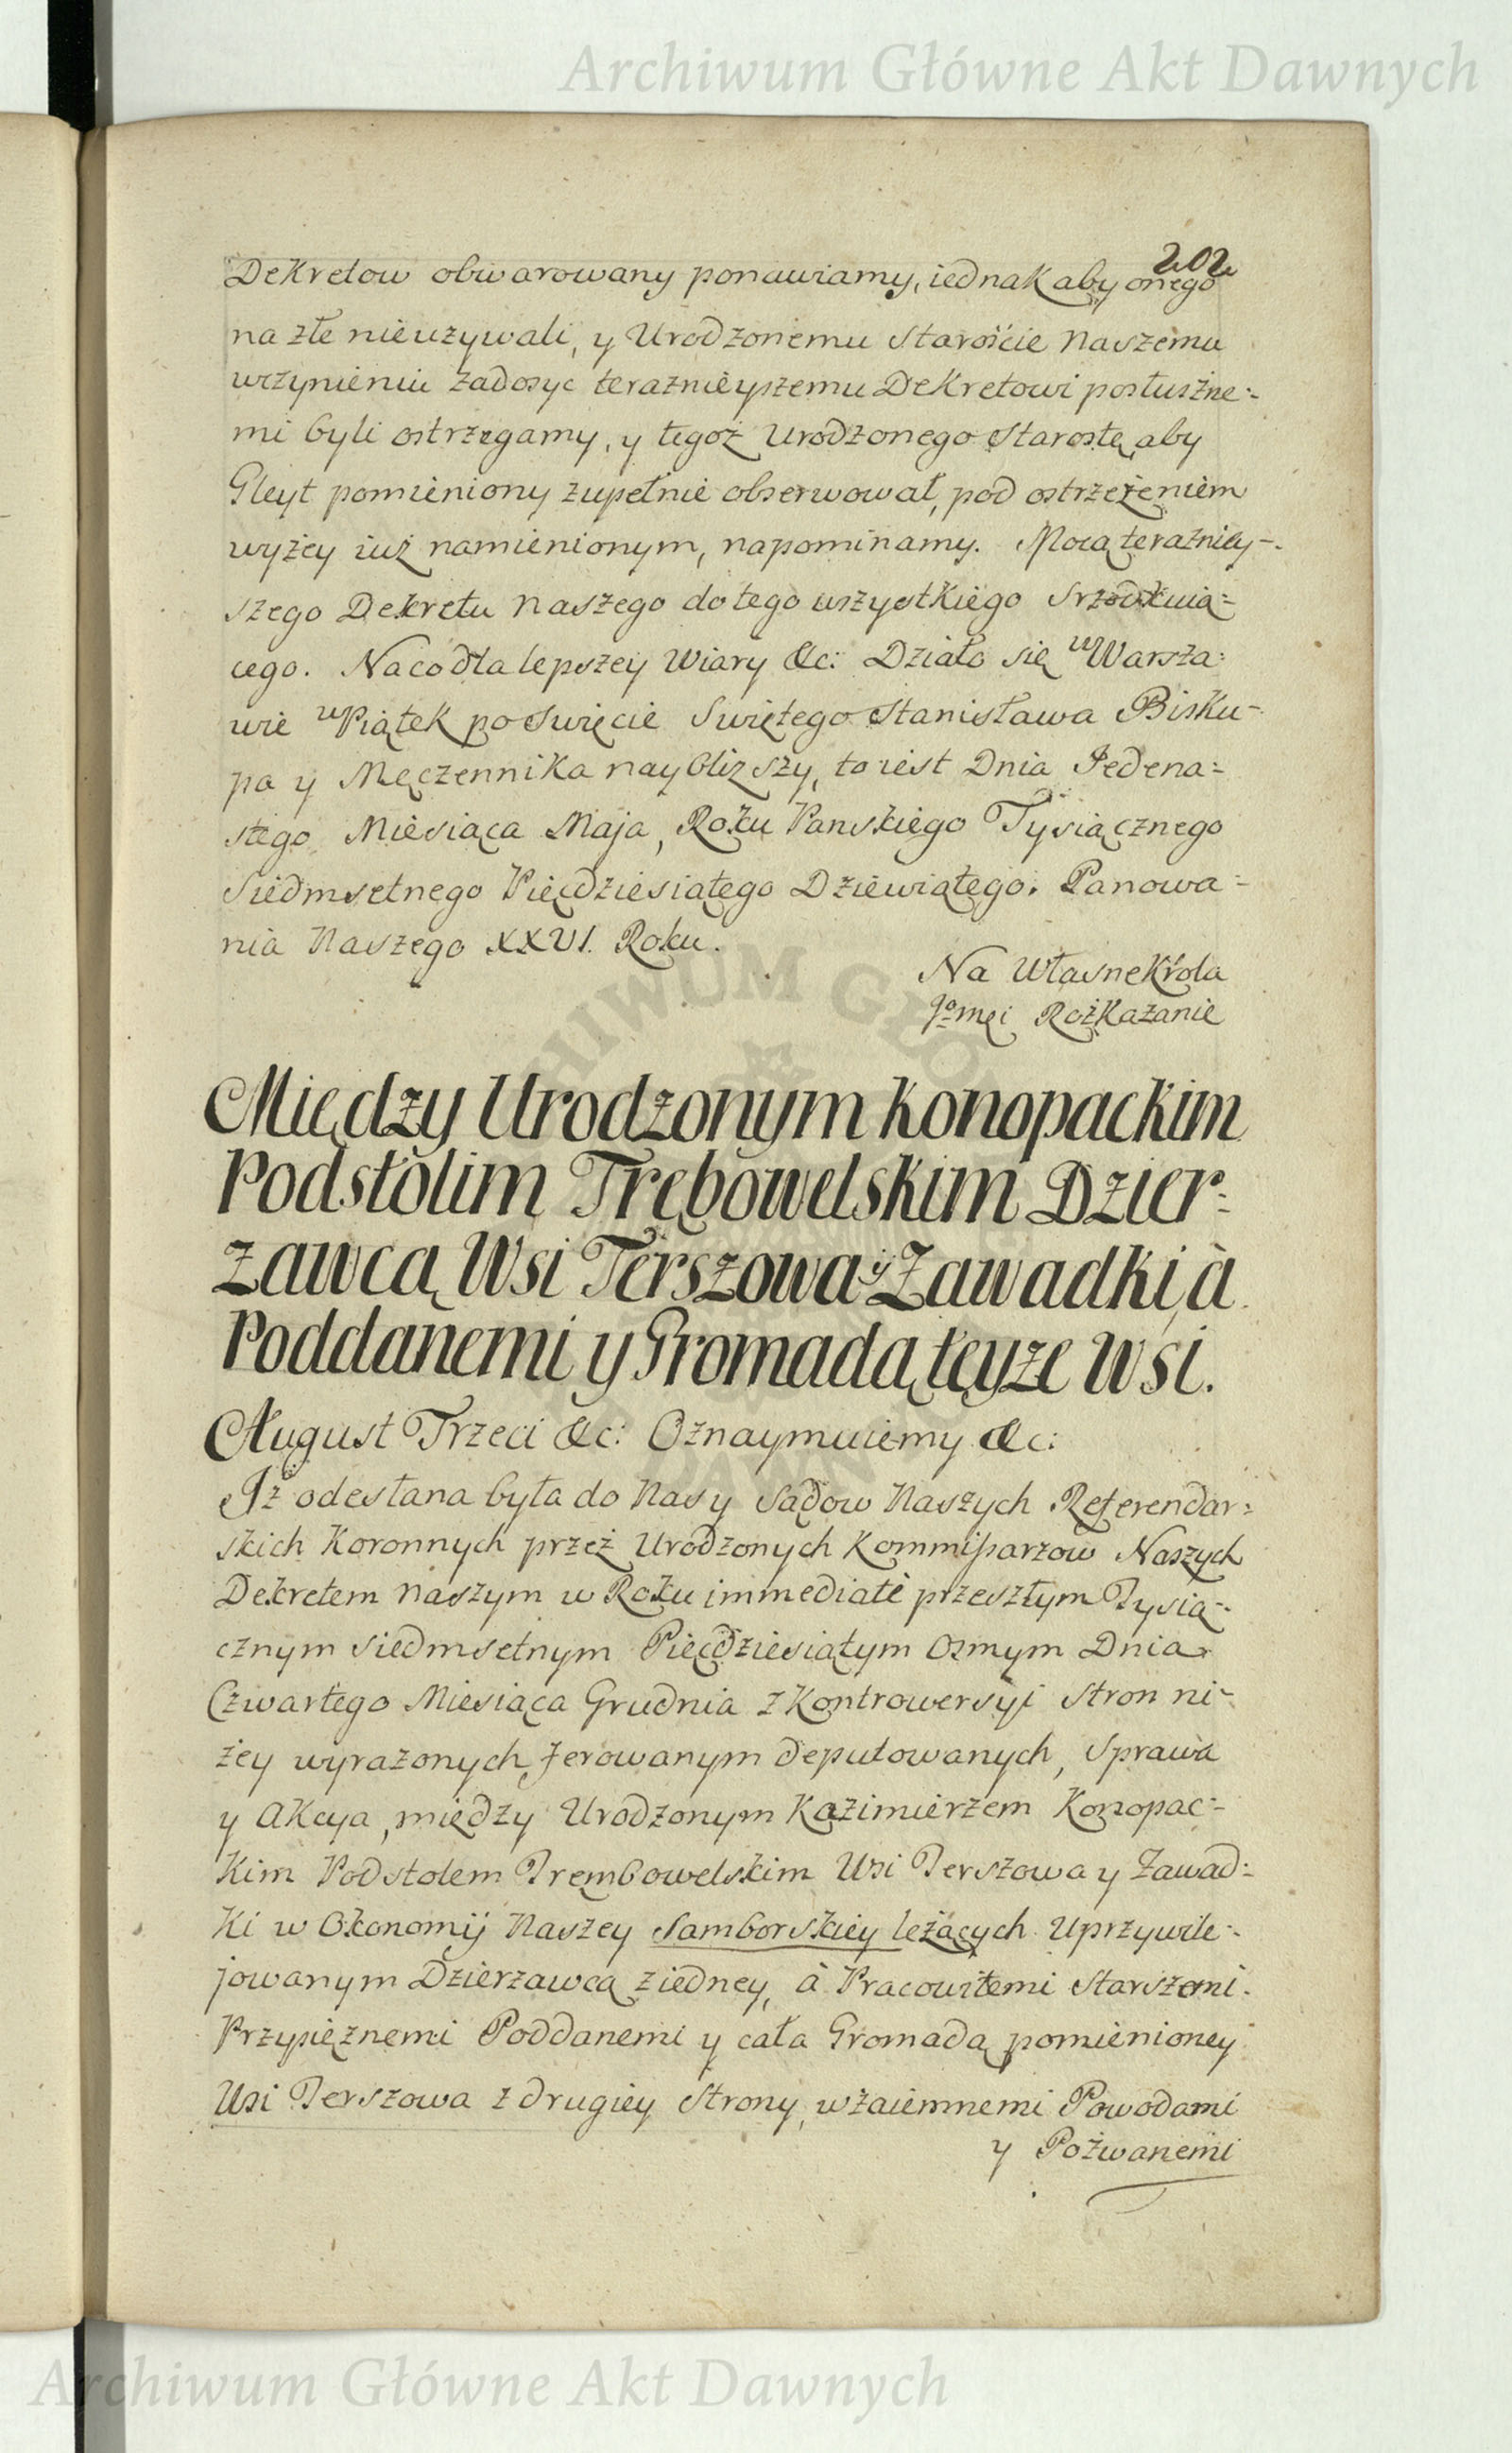 Archiwum Główne Akt Dawnych
202
Dekretow obwarowany ponawiamy, iednak aby onego
na złe nieuzywali, y Urodzonemu Starośćie Naszemu
uczynieniu zadosyc teraznieyszemu Dekretowi posłuszne-
mi byli ostrzegamy, y tegoż Urodzonego Starostę, aby
Gleyt pomieniony zupełnie obserwował, pod ostrzeżeniem
wyżey iuż namienionym, napominamy. Mocą teraźniey-
szego Dekretu Naszego do tego wszystkiego
cego. Na co dla lepszey Wiary &c: Działo się w Warsza-
wie w Piątek po Swięcie Swiętego Stanisława Bisku-
pa y Męczennika nayblizszy, to iest Dnia Jedena-
stego Miesiąca Maja, Roku Panskiego Tysiącznego
Siedmsetnego Pięcdziesiątego Dziewiątego. Panowa-
nia Naszego XXVI. Roku.
Na Własne Krola
Jo mci Rozkazanie
Między Urodzonym Konopackim
Podstolim Trębowelskim Dzier-
zawcą Wsi Terszowa y Zawadki, à
Poddanemi y Gromadą teyze Wsi.
August Trzeci &c: Oznaymuiemy &c:
Iż odesłana była do Nas y Sądow Naszych Referendar-
skich Koronnych przeż Urodzonych Kommissarzow Naszych
Dekretem Naszym w Roku immediatè przeszłym Tysią-
cznym Siedmsetnym Pięcdziesiątym Osmym Dnia
Czwartego Miesiąca Grudnia z Kontrowersyi Stron ni-
żey wyrażonych, ferowanym deputowanych, Sprawa
y Akcya, między Urodzonym Kazimierzem Konopac-
kim Podstolem Trembowelskim Wsi Terszowa y Zawad-
ki w Okonomij Naszey Samborskiey leżących Uprzywile-
jowanym Dzierzawcą z iedney, à Pracowitemi Starszemi
Przysięznemi Poddanemi y cała Gromadą pomienioney
Wsi Terszowa z drugiey Strony, wzaiemnemi Powodami
y Pozwanemi
Archiwum Główne Akt Dawnych